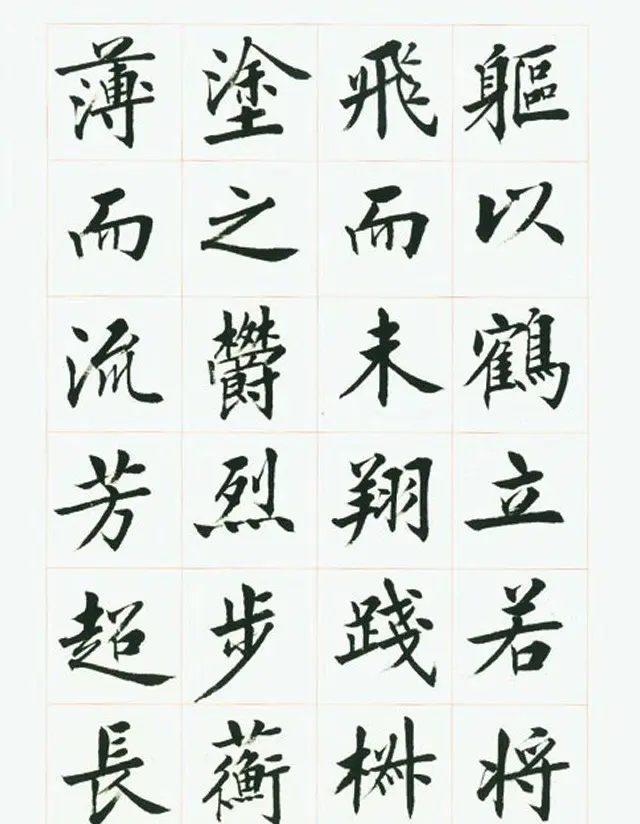 軀以鶴立若將
飛而未翔踐椒
塗之欝烈步蘅
薄而流芳超長